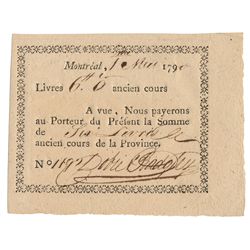 Montréal, 1790
Livres 6 ancien cours
A vue, Nous payerons
au Porteur du Présent la Somme
de Six Livres
ancien cours de la Province.
No